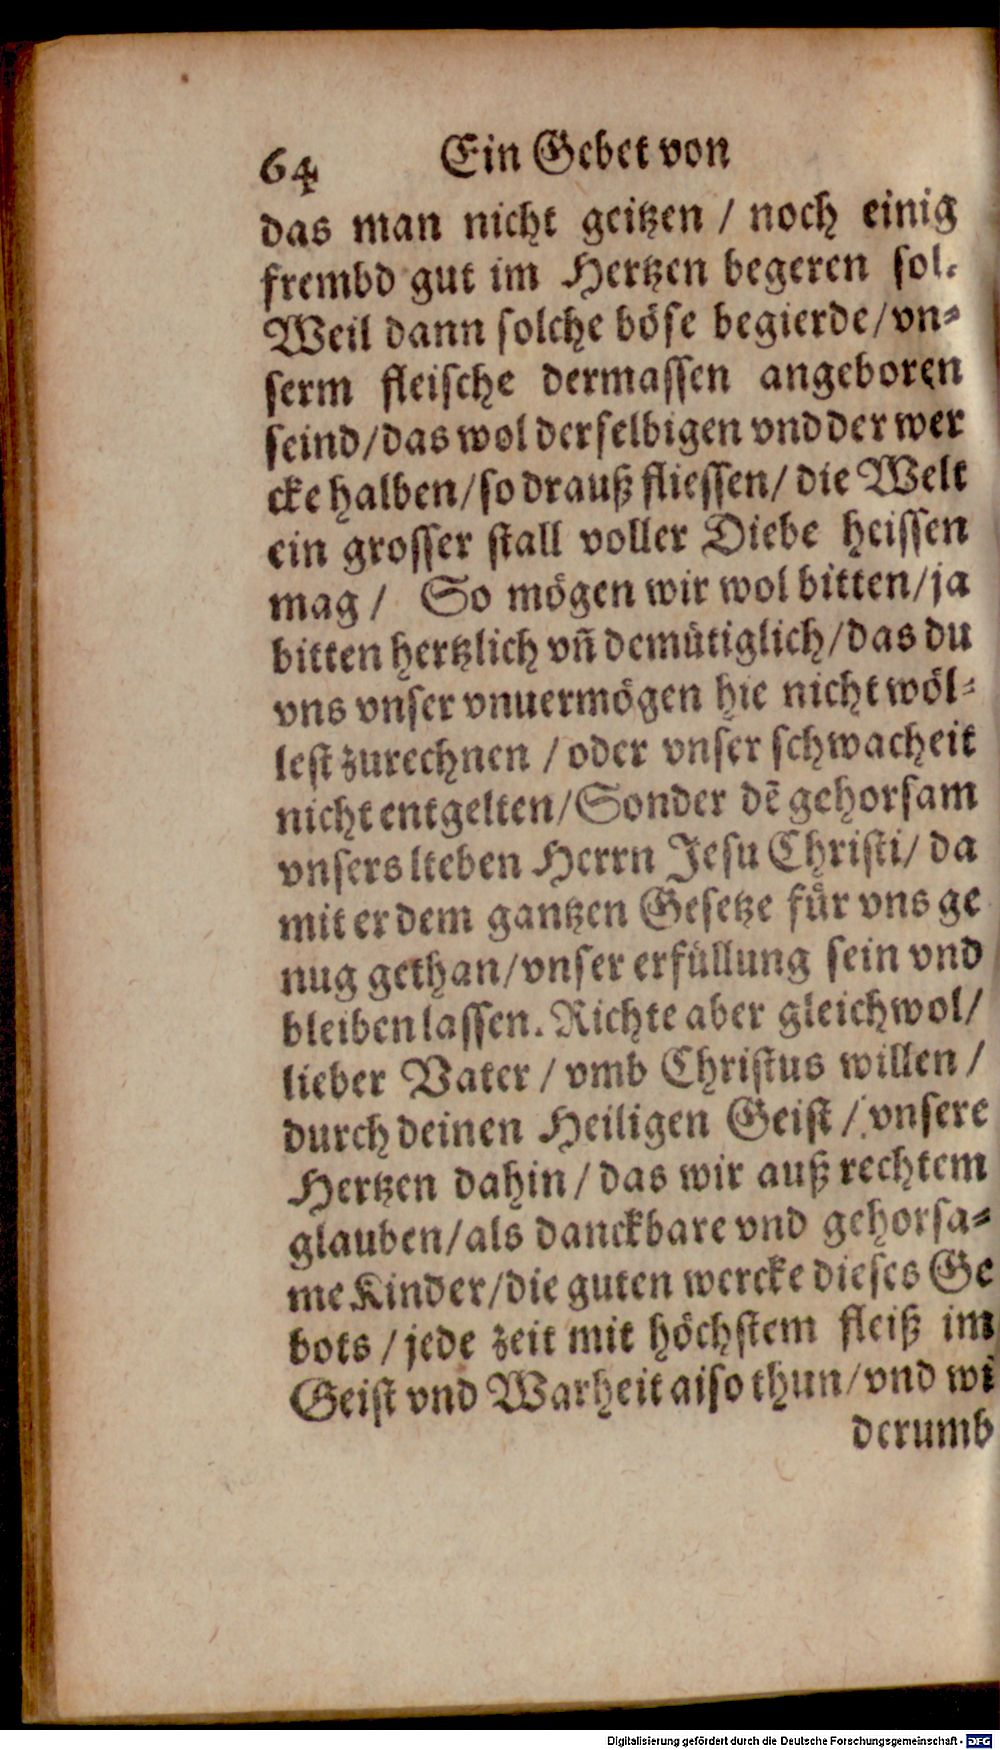 64 Ein Gebet von
das man nicht geitzen / noch einig
frembd gut im Hertzen begeren sol.
Weil dann solche böse begierde/vn-
serm fleische dermassen angeboren
seind/das wol derselbigen vnd der wer
cke halben/so drauß fliessen/ die Welt
ein grosser stall voller Diebe heissen
mag / So mögen wir wol bitten/ja
bitten hertzlich vñ demütiglich/das du
vns vnser vnuermögen hie nicht wöl-
lest zurechnen / oder vnser schwacheit
nicht entgelten/Sonder dē gehorsam
vnsers lieben Herrn Jesu Christi/ da
mit er dem gantzen Gesetze für vns ge
nug gethan/vnser erfüllung sein vnd
bleiben lassen. Richte aber gleichwol/
lieber Vater / vmb Christus willen /
durch deinen Heiligen Geist / vnsere
Hertzen dahin / das wir auß rechtem
glauben/als danckbare vnd gehorsa-
me Kinder/die guten wercke dieses Ge
bots / jede zeit mit höchstem fleiß im
Geist vnd Warheit also thun/vnd wi
derumb
Digitalisierung gefördert durch die Deutsche Forschungsgemeinschaft - DFG